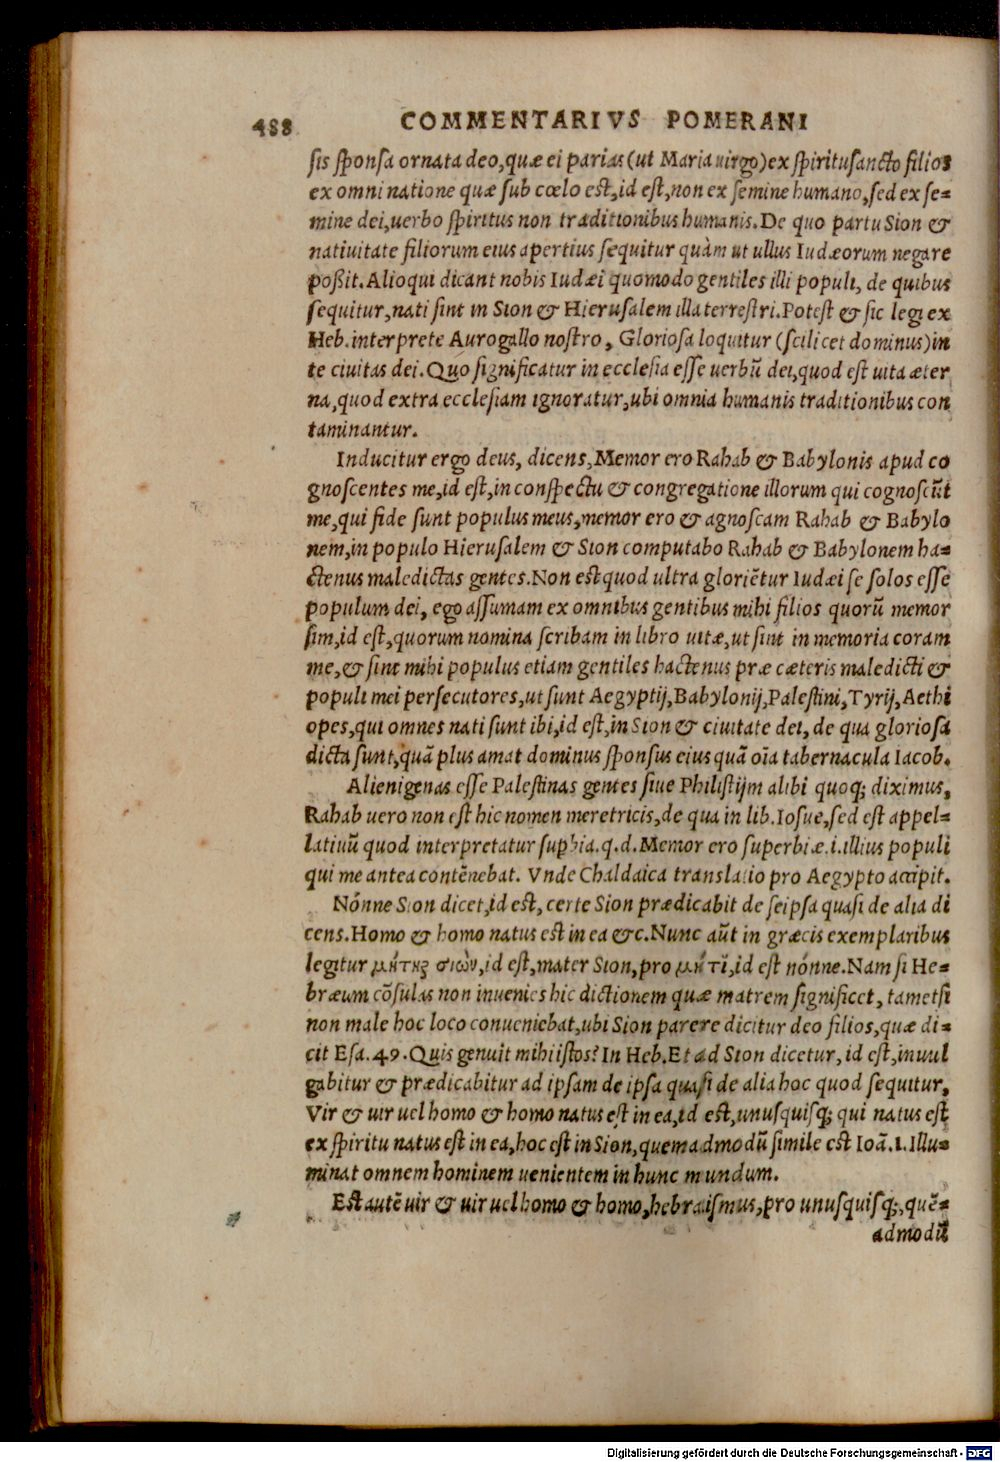 488 COMMENTARIVS POMERANI
sis sponsa ornata deo, quæ ei parias (ut Maria uirgo) ex spiritusancto filios
ex omni natione quæ sub cœlo est, id est, non ex semine humano, sed ex se-
mine dei, uerbo spiritus non traditionibus humanis. De quo partu Sion &
natiuitate filiorum eius apertius sequitur quàm ut ullus Iudæorum negare
poßit. Alioqui dicant nobis Iudæi quomodo gentiles illi populi, de quibus
sequitur, nati sint in Sion & Hierusalem illa terrestri. Potest & sic legi ex
Heb. interprete Aurogallo nostro, Gloriosa loquitur (scilicet dominus) in
te ciuitas dei. Quo significatur in ecclesia esse uerbũ dei, quod est uita æter
na, quod extra ecclesiam ignoratur, ubi omnia humanis traditionibus con
taminantur.
Inducitur ergo deus, dicens, Memor ero Rahab & Babylonis apud co
gnoscentes me, id est, in conspectu & congregatione illorum qui cognoscũt
me, qui fide sunt populus meus, memor ero & agnoscam Rahab & Babylo
nem, in populo Hierusalem & Sion computabo Rahab & Babylonem ha-
ctenus maledictas gentes. Non est quod ultra gloriẽtur Iudæi se solos esse
populum dei, ego assumam ex omnibus gentibus mihi filios quorũ memor
sim, id est, quorum nomina scribam in libro uitæ, ut sint in memoria coram
me, & sint mihi populus etiam gentiles hactenus præ cæteris maledicti &
populi mei persecutores, ut sunt Aegyptij, Babylonij, Palestini, Tyrij, Aethi
opes, qui omnes nati sunt ibi, id est, in Sion & ciuitate dei, de qua gloriosa
dicta sunt, quã plus amat dominus sponsus eius quã oĩa tabernacula Iacob.
Alienigenas esse Palestinas gentes siue Philistijm alibi quoq; diximus,
Rahab uero non est hic nomen meretricis, de qua in lib. Iosue, sed est appel-
latiuũ quod interpretatur suphia. q. d. Memor ero superbiæ. i. illius populi
qui me antea contẽnebat. Vnde Chaldaica translatio pro Aegypto accipit.
Nónne Sion dicet, id est, certe Sion prædicabit de seipsa quasi de alia di
cens. Homo & homo natus est in ea &c. Nunc aũt in græcis exemplaribus
legitur μήτηρ σιὼν, id est, mater Sion, pro μήτι, id est nónne. Nam si He-
bræum cõsulas non inuenies hic dictionem quæ matrem significet, tametsi
non male hoc loco conueniebat, ubi Sion parere dicitur deo filios, quæ di-
cit Esa. 49. Quis genuit mihi istos? In Heb. Et ad Sion dicetur, id est, inuul
gabitur & prædicabitur ad ipsam de ipsa quasi de alia hoc quod sequitur,
Vir & uir uel homo & homo natus est in ea, id est, unusquisq; qui natus est
ex spiritu natus est in ea, hoc est in Sion, quemadmodũ simile est Ioã. 1. Illu-
minat omnem hominem uenientem in hunc mundum.
Est autẽ uir & uir uel homo & homo, hebraismus, pro unusquisq;, quẽ-
admodũ
Digitalisierung gefördert durch die Deutsche Forschungsgemeinschaft - DFG